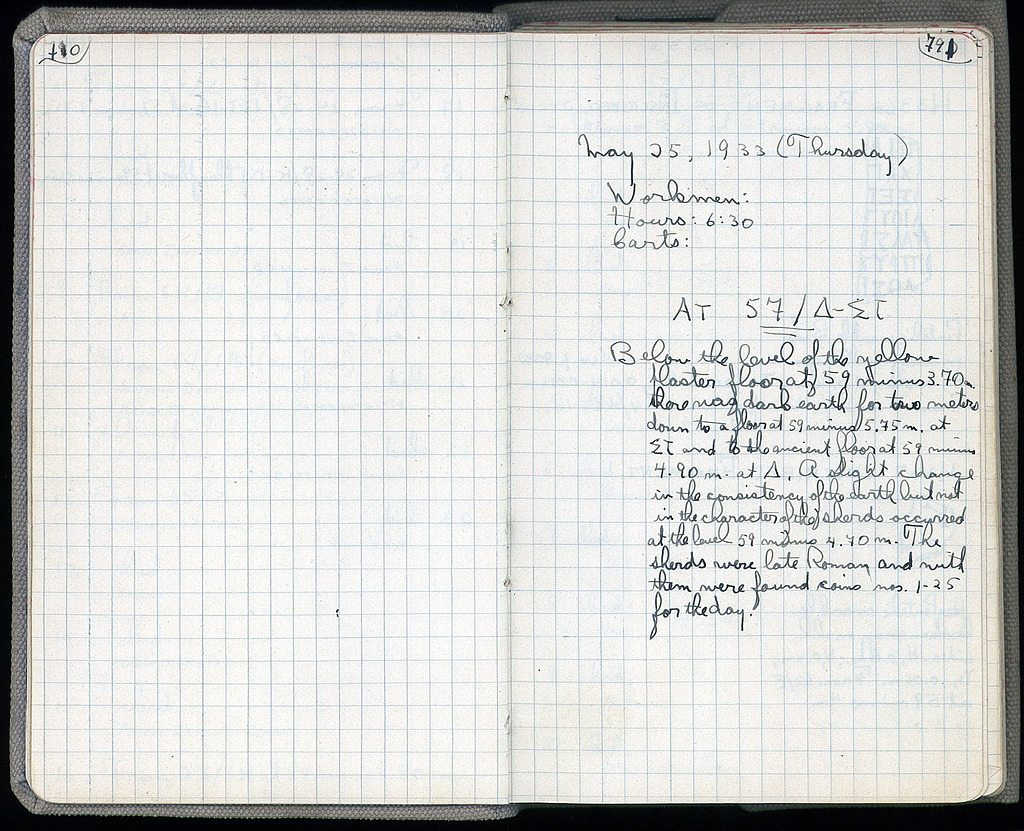 790
791
May 25, 1933 (Thursday)
Workmen:
Hours: 6:30
Carts:
AT 57/Δ-ΣΤ
Below the level of the yellow
plaster floor at 59 minus 3.70 m.
there was dark earth for two meters
down to a floor at 59 minus 5.75 m. at
ΣΤ and to the ancient floor at 59 minus
4.90 m. at Δ. A slight change
in the consistency of the earth but not
in the character of the sherds occurred
at the level 59 minus 4.70 m. The
sherds were late Roman and with
them were found coins nos. 1-25
for the day.